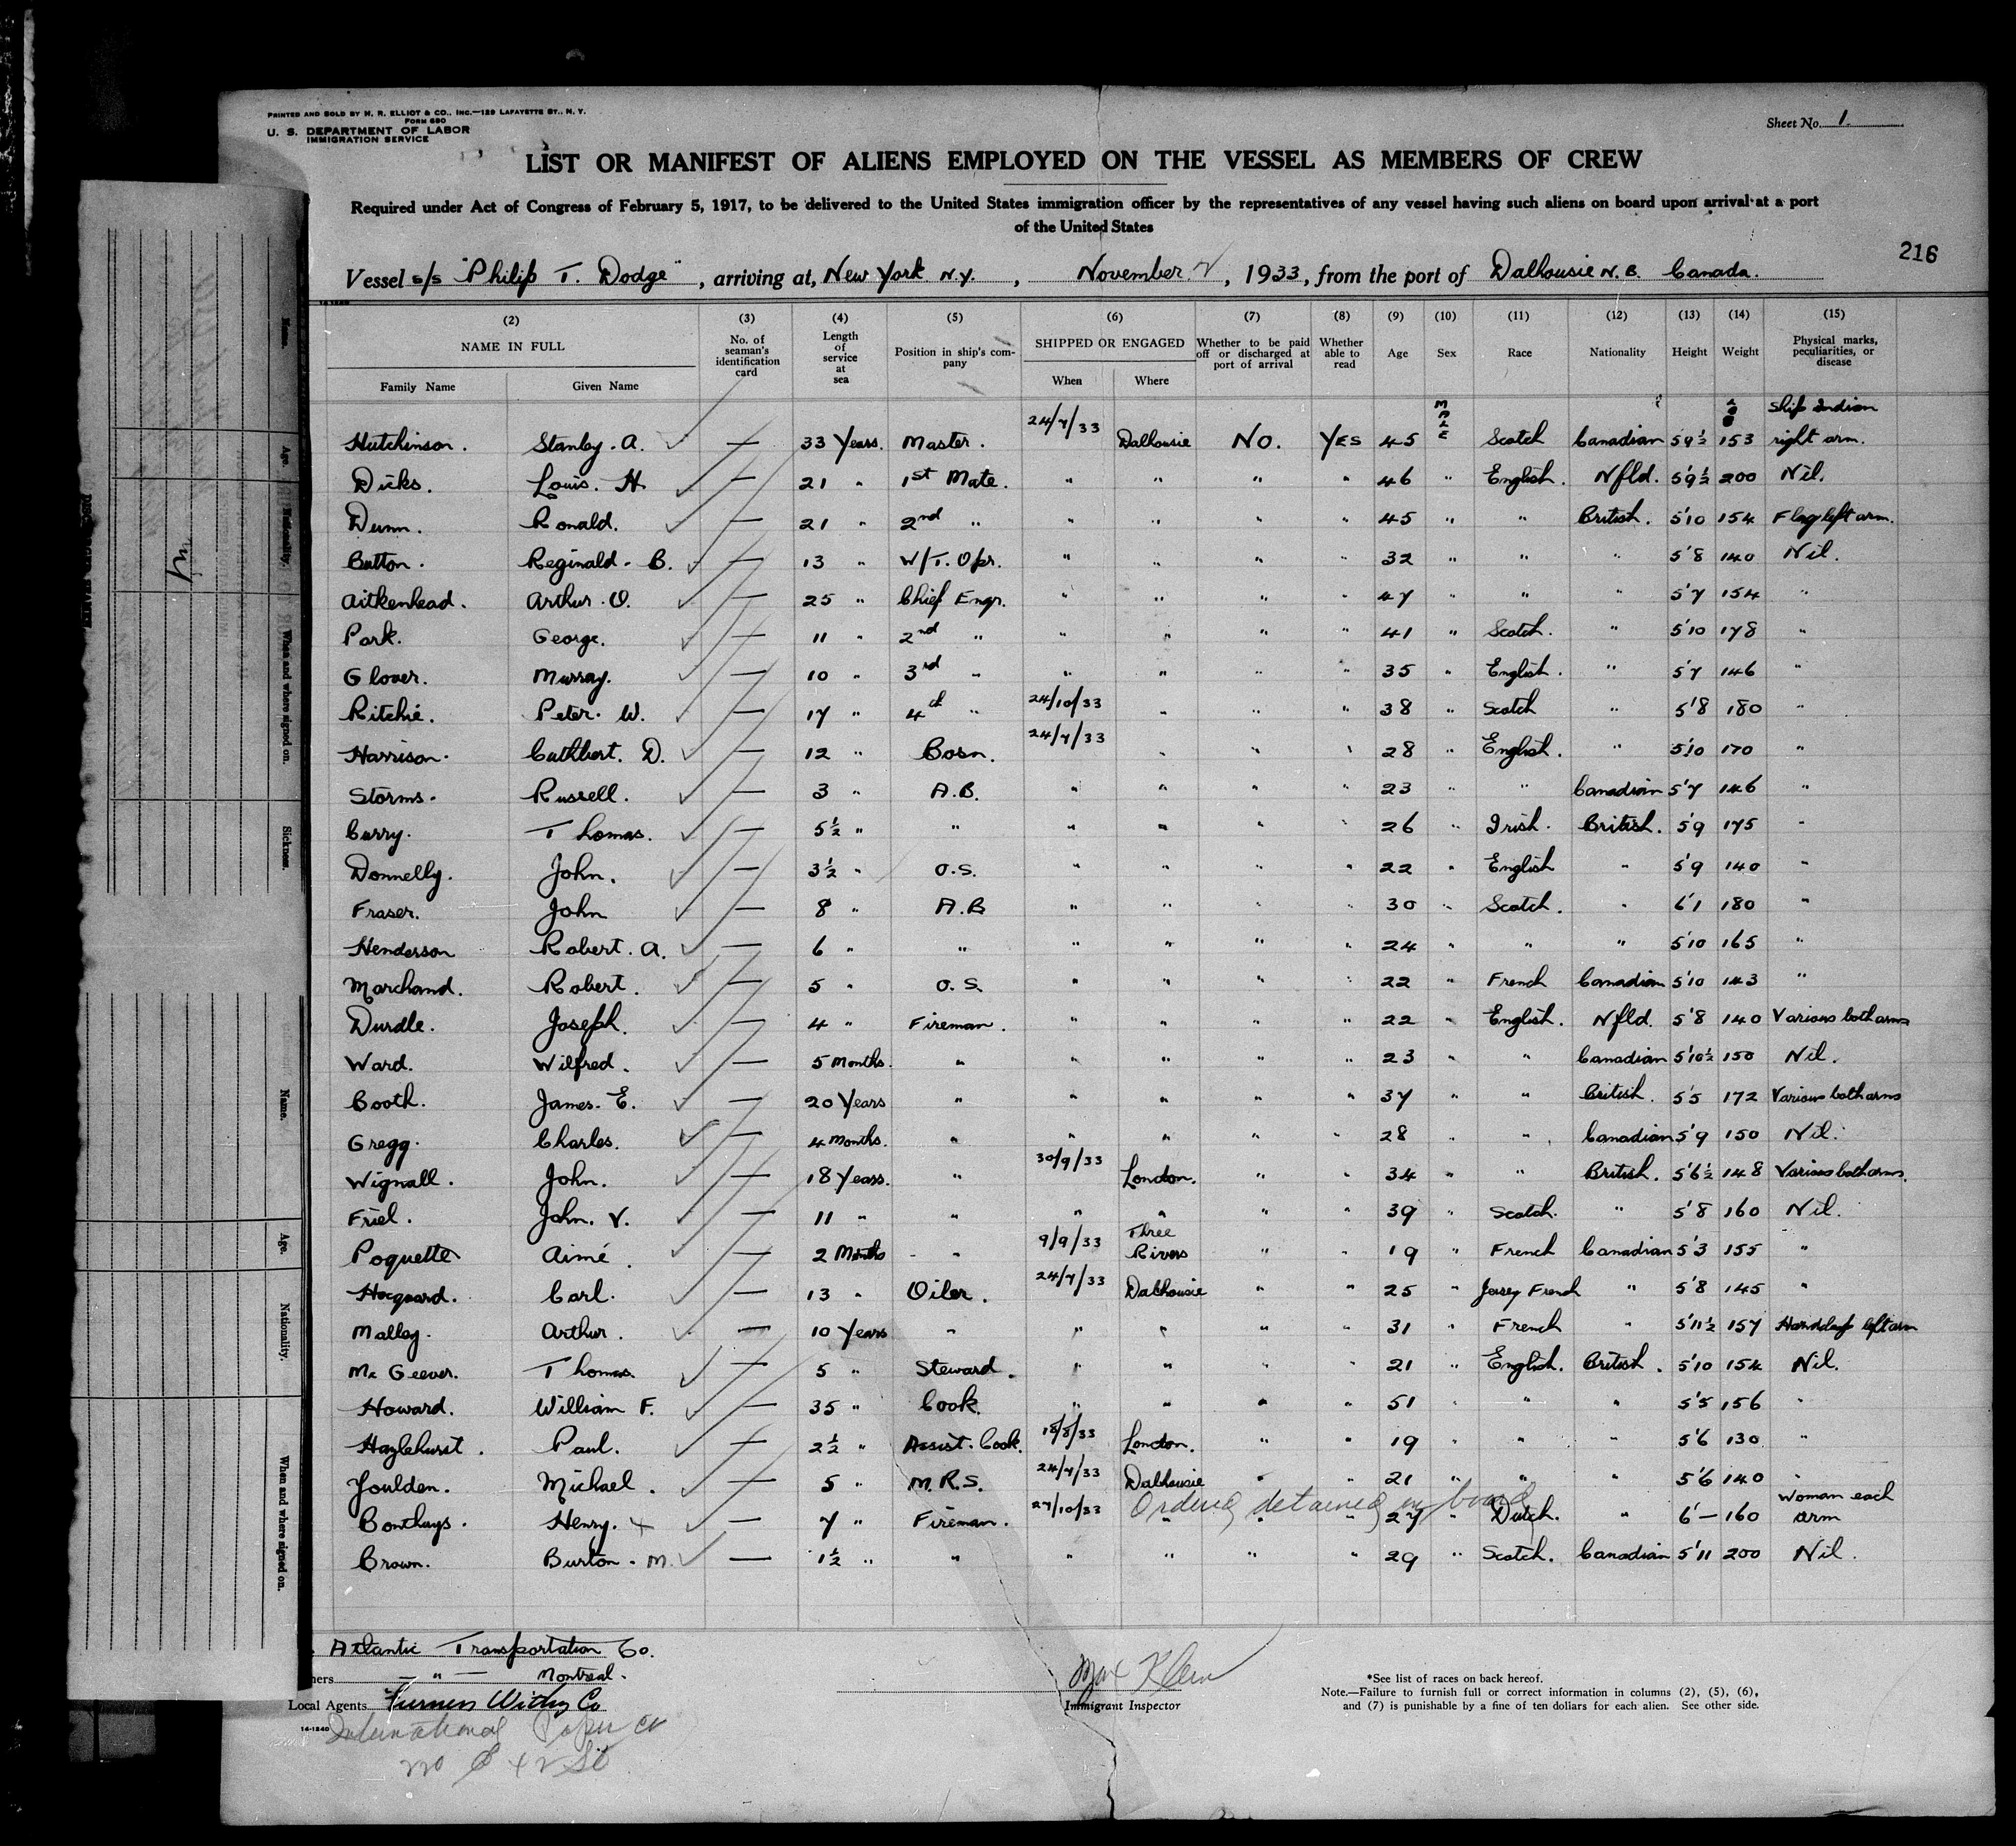 PRINTED AND SOLD BY H. R. ELLIOT & CO., INC.—129 LAFAYETTE ST., N. Y.
FORM 690
U. S. DEPARTMENT OF LABOR
IMMIGRATION SERVICE
Sheet No. 1.
LIST OR MANIFEST OF ALIENS EMPLOYED ON THE VESSEL AS MEMBERS OF CREW
Required under Act of Congress of February 5, 1917, to be delivered to the United States immigration officer by the representatives of any vessel having such aliens on board upon arrival at a port
of the United States
216
Vessel s/s "Philip T. Dodge", arriving at, New York N.Y., November, 1933, from the port of Dalhousie N.B. Canada.
(2) (3) (4) (5) (6) (7) (8) (9) (10) (11) (12) (13) (14) (15)
NAME IN FULL No. of seaman's identification card Length of service at sea Position in ship's company SHIPPED OR ENGAGED Whether to be paid off or discharged at port of arrival Whether able to read Age Sex Race Nationality Height Weight Physical marks, peculiarities, or disease
Family Name Given Name When Where
Hutchinson. Stanley. A. — 33 Years. Master. 24/7/33 Dalhousie No. Yes 45 MALE Scotch Canadian 5'9½ 153 Ship Indian right arm.
Dicks. Louis. H. — 21 " 1st Mate. " " " " 46 " English. Nfld. 5'9½ 200 Nil.
Dunn. Ronald. — 21 " 2nd " " " " " 45 " " British. 5'10 154 Flag left arm.
Button. Reginald. B. — 13 " W/T. Opr. " " " " 32 " " " 5'8 140 Nil.
Aitkenhead. Arthur. O. — 25 " Chief Engr. " " " " 47 " " " 5'7 154 "
Park. George. — 11 " 2nd " " " " " 41 " Scotch. " 5'10 178 "
Glover. Murray. — 10 " 3rd " " " " " 35 " English. " 5'7 146 "
Ritchie. Peter. W. — 17 " 4th " 24/10/33 " " " 38 " Scotch " 5'8 180 "
Harrison. Cuthbert. D. — 12 " Bosn. 24/7/33 " " " 28 " English. " 5'10 170 "
Storms. Russell. — 3 " A.B. " " " " 23 " " Canadian 5'7 146 "
Curry. Thomas. — 5½ " " " " " " 26 " Irish. British. 5'9 175 "
Donnelly. John. — 3½ " O.S. " " " " 22 " English " 5'9 140 "
Fraser. John — 8 " A.B. " " " " 30 " Scotch. " 6'1 180 "
Henderson Robert. A. — 6 " " " " " " 24 " " " 5'10 165 "
Marchand. Robert. — 5 " O.S. " " " " 22 " French Canadian 5'10 143 "
Durdle. Joseph. — 4 " Fireman. " " " " 22 " English. Nfld. 5'8 140 Various both arms
Ward. Wilfred. — 5 Months. " " " " " 23 " " Canadian 5'10½ 150 Nil.
Booth. James. E. — 20 Years " " " " " 37 " " British. 5'5 172 Various both arms
Gregg. Charles. — 4 Months. " " " " " 28 " " Canadian 5'9 150 Nil.
Wignall. John. — 18 Years. " 30/9/33 London. " " 34 " " British. 5'6½ 148 Various both arms.
Friel. John. V. — 11 " " " " " " 39 " Scotch. " 5'8 160 Nil.
Poquette Aimé. — 2 Months " 9/9/33 Three Rivers " " 19 " French Canadian 5'3 155 "
Hacquard. Carl. — 13 " Oiler. 24/7/33 Dalhousie " " 25 " Jersey French " 5'8 145 "
Malley. Arthur. — 10 Years " " " " " 31 " French " 5'11½ 157 Handclasp left arm
Mc Geever. Thomas. — 5 " Steward. " " " " 21 " English. British. 5'10 154 Nil.
Howard. William F. — 35 " Cook. " " " " 51 " " " 5'5 156 "
Hazlehurst. Paul. — 2½ " Assist. Cook. 18/8/33 London. " " 19 " " " 5'6 130 "
Joulden. Michael. — 5 " M.R.S. 24/7/33 Dalhousie " " 21 " " " 5'6 140 "
Ordered detained on board
Bonthuys. Henry. x — 7 " Fireman. 27/10/33 " " " 27 " Dutch. " 6'— 160 Woman each arm
Brown. Burton. M. — 1½ " " " " " " 29 " Scotch. Canadian 5'11 200 Nil.
Atlantic Transportation Co.
ners — " — Montreal.
Local Agents Furness Withy Co
14-1240
International Paper Co
Max Klein
Immigrant Inspector
*See list of races on back hereof.
Note.—Failure to furnish full or correct information in columns (2), (5), (6),
and (7) is punishable by a fine of ten dollars for each alien. See other side.
Name.
Age.
Nationality.
When and where signed on.
Sickness.
Name.
Age.
Nationality.
When and where signed on.